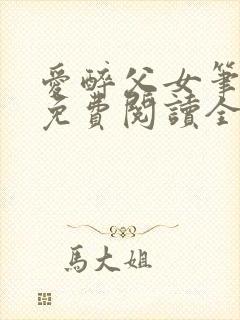 愛醉父女筆
免費閱讀全
馬大姐